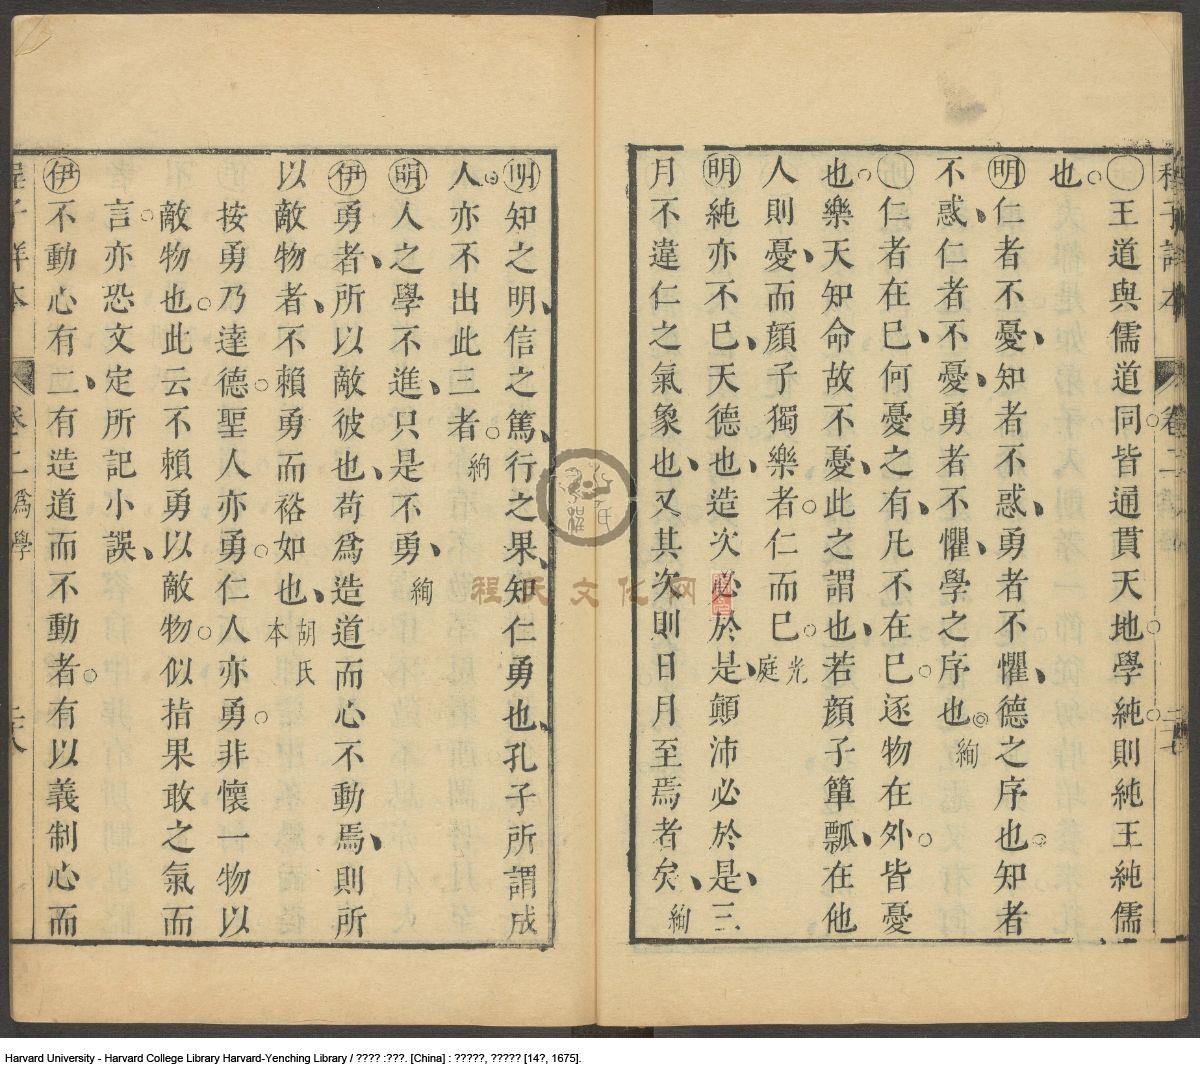 程子詳本 卷二 二十七
〇王道與儒道同皆通貫天地學純則純王純儒
也
明仁者不憂知者不惑勇者不懼德之序也知者
不惑仁者不憂勇者不懼學之序也絢
〇仁者在已何憂之有凡不在已逐物在外皆憂
也樂天知命故不憂此之謂也若顔子簞瓢在他
人則憂而顔子獨樂者仁而已光庭
明純亦不已天德也造次必於是顛沛必於是三
月不違仁之氣象也又其次則日月至焉者矣絢
明知之明信之篤行之果知仁勇也孔子所謂成
人亦不出此三者絢
明人之學不進只是不勇絢
伊勇者所以敵彼也苟爲造道而心不動焉則所
以敵物者不賴勇而裕如也胡氏本
按勇乃達德聖人亦勇仁人亦勇非懷一物以
敵物也此云不賴勇以敵物似指果敢之氣而
言亦恐文定所記小誤
伊不動心有二有造道而不動者有以義制心而
程子詳本 卷二爲學 二十八
程氏文化网
Harvard University - Harvard College Library Harvard-Yenching Library / ???? :???. [China] : ?????, ????? [14?, 1675].